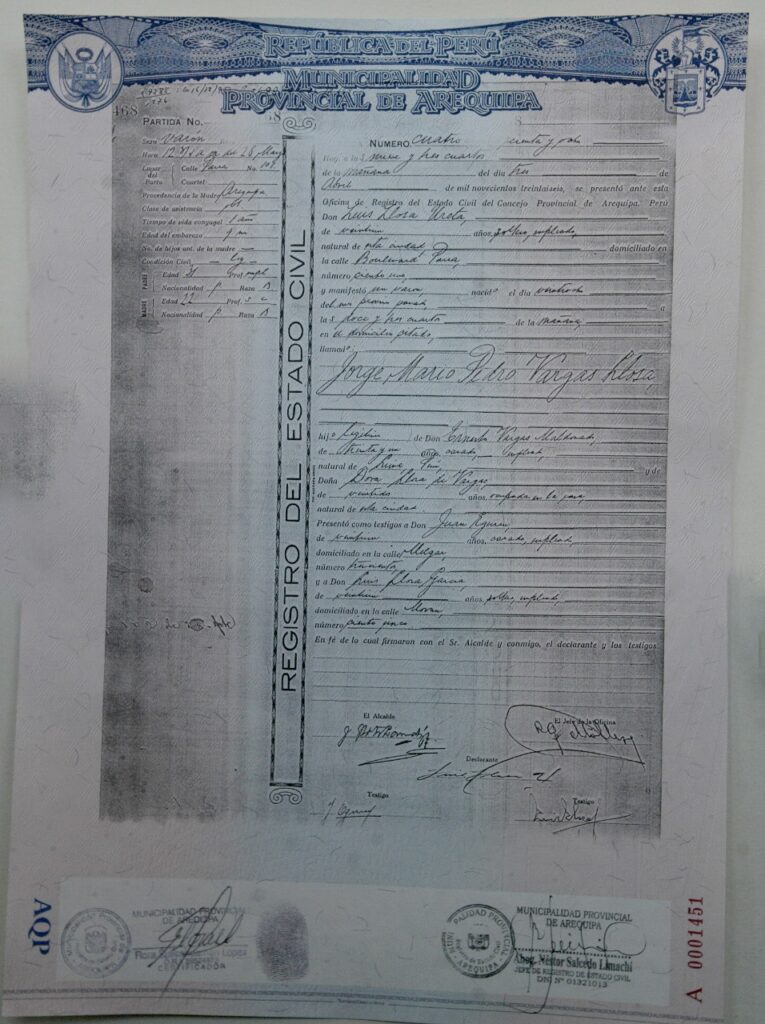 REPÚBLICA DEL PERÚ
MUNICIPALIDAD
PROVINCIAL DE AREQUIPA
468
PARTIDA No.
Sexo varón
Hora 12 del 28 Marzo
Lugar del Parto Calle Parra No. 101
Cuartel
Procedencia de la Madre Arequipa
Clase de asistencia
Tiempo de vida conyugal 1 año
Edad del embarazo 9 m
No. de hijos ant. de la madre —
Condición Civil — Leg —
PADRE Edad Prof. empl
Nacionalidad P Raza B
MADRE Edad 22 Prof. s. c
Nacionalidad P Raza B
REGISTRO DEL ESTADO CIVIL
NUMERO. cuatro
Hoy, a la s nueve y tres cuartos
de la mañana del día tres de
Abril de mil novecientos treintaiseis, se presentó ante esta
Oficina de Registro del Estado Civil del Concejo Provincial de Arequipa. Perú
Don Luis Llosa Ureta,
de veintiun años, soltero, empleado,
natural de esta ciudad domiciliado en
la calle Boulevard Parra,
número ciento uno
y manifestó un varon nacido el día veintiocho
del mes próximo pasado a
la s doce y tres cuartos de la mañana
en el domicilio citado,
llamado:
Jorge Mario Pedro Vargas Llosa,
hijo legítimo de Don Ernesto Vargas Maldonado,
de treinta y un años, casado, empleado,
natural de Lima Perú, y de
Doña Dora Llosa de Vargas
de veintidos años, ocupada en la casa,
natural de esta ciudad.
Presentó como testigos a Don Juan Eguren,
de veintiun años, casado, empleado,
domiciliado en la calle Melgar
número trescientos
y a Don Luis Llosa García,
de veintiun años, soltero, empleado
domiciliado en la calle Moran,
número ciento cinco
En fé de lo cual firmaron con el Sr. Alcalde y conmigo, el declarante y los testigos
El Alcalde
El Jefe de la Oficina
Declarante
Testigo
Testigo
AQP
MUNICIPALIDAD PROVINCIAL
DE AREQUIPA
CERTIFICADOR
MUNICIPALIDAD PROVINCIAL
DE AREQUIPA
Abog. Néstor Salcedo Limachi
JEFE DE REGISTRO DE ESTADO CIVIL
DNI Nº 01321013
A 0001451